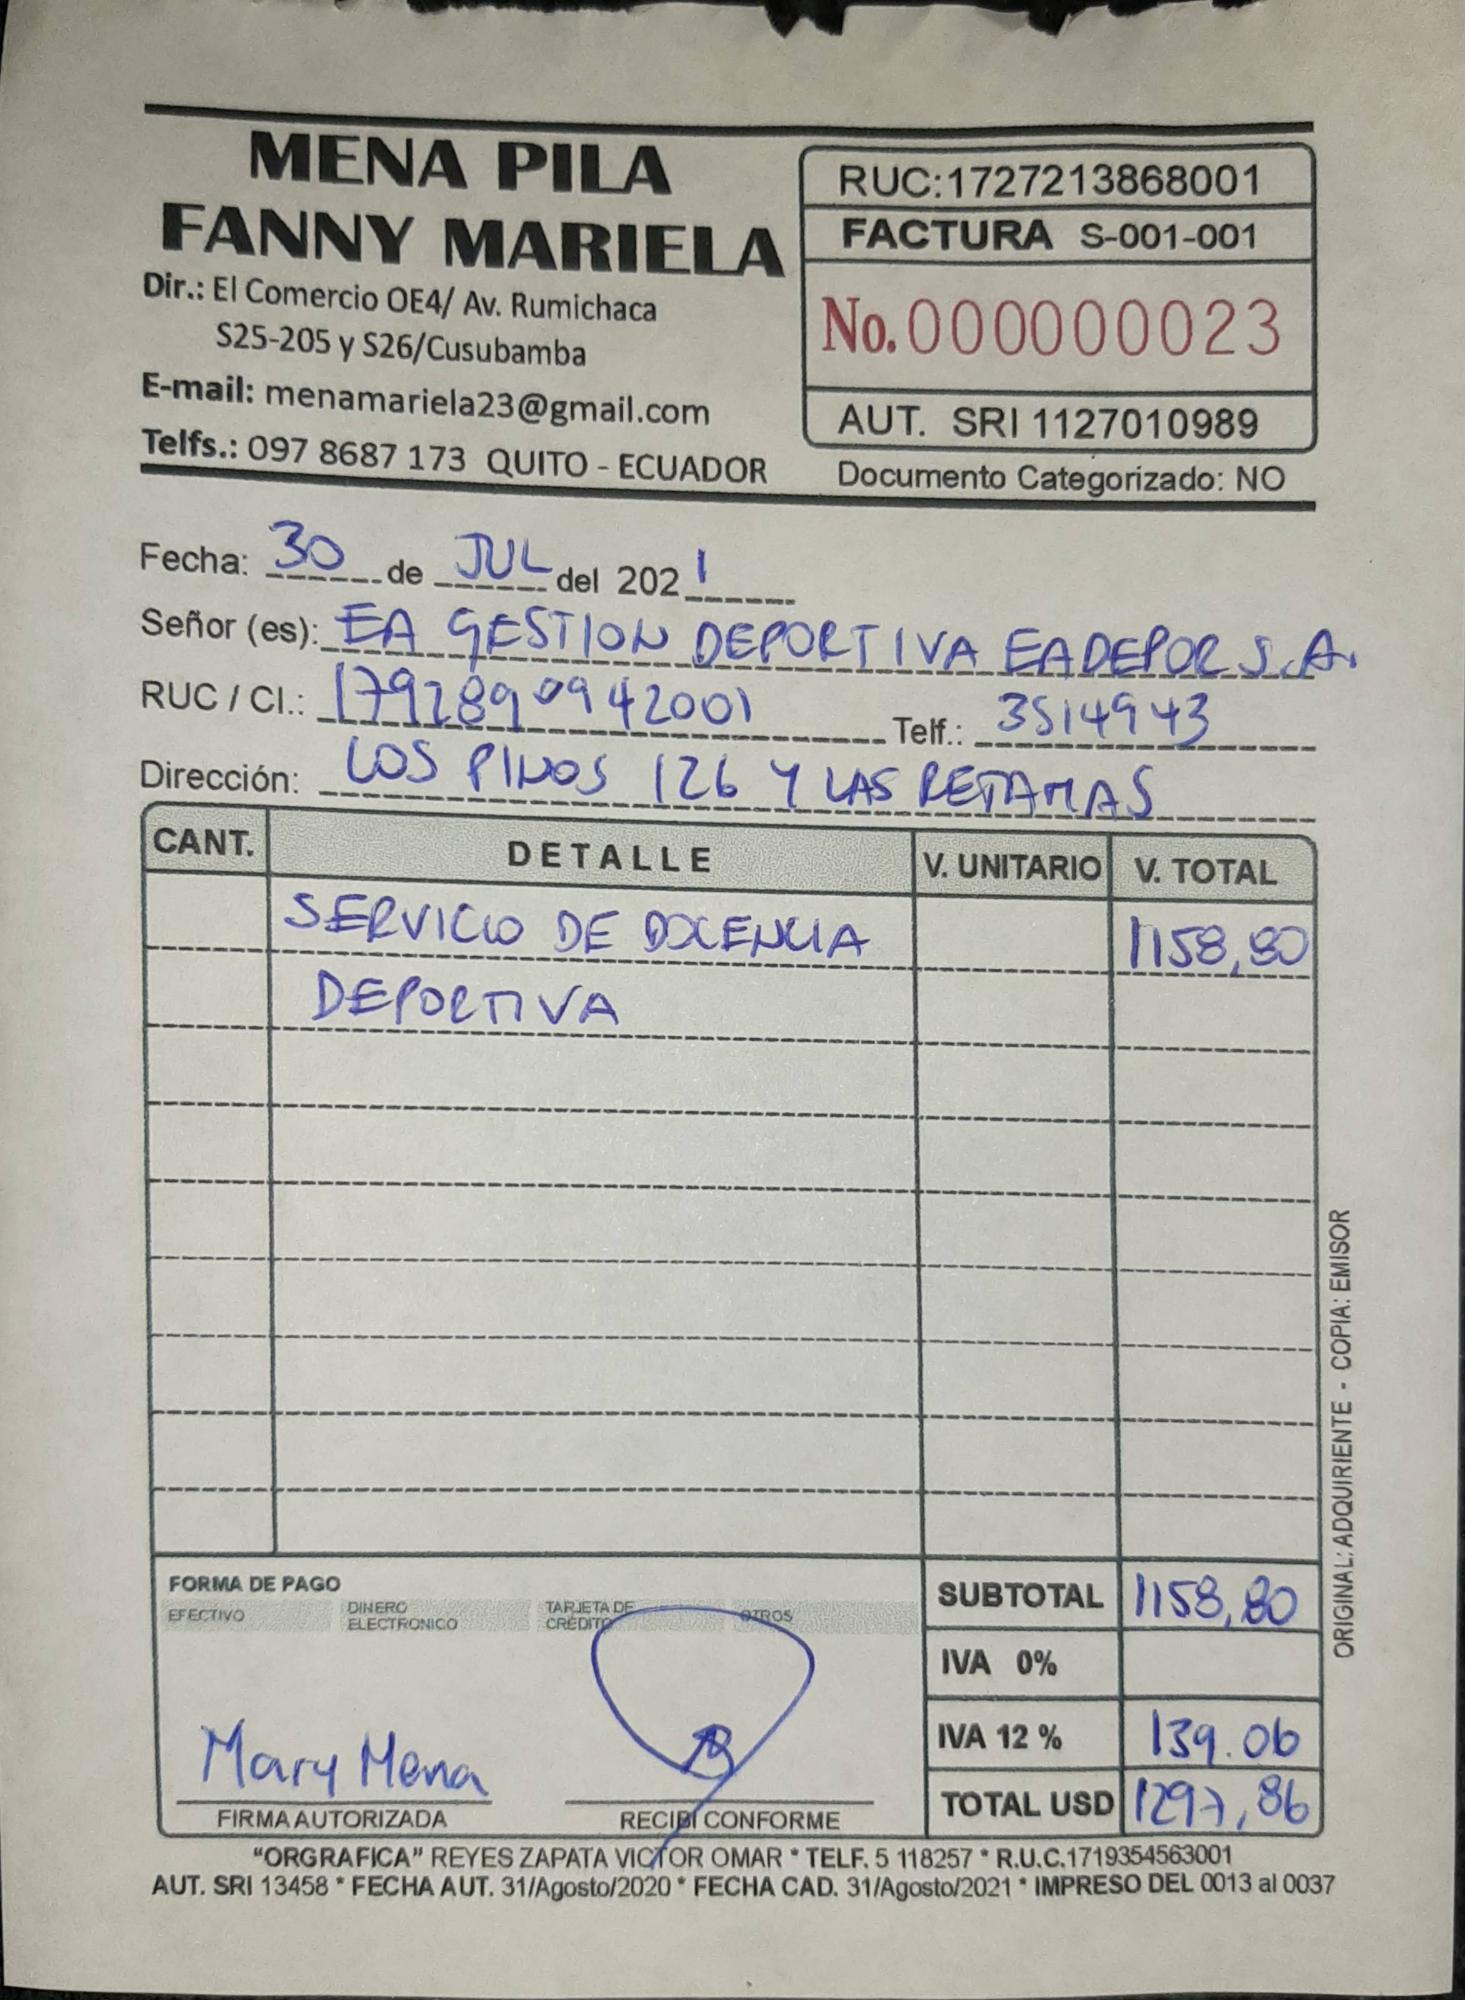 MENA PILA
FANNY MARIELA
Dir.: El Comercio OE4/ Av. Rumichaca
S25-205 y S26/Cusubamba
E-mail: menamariela23@gmail.com
Telfs.: 097 8687 173 QUITO - ECUADOR
RUC:1727213868001
FACTURA S-001-001
No.000000023
AUT. SRI 1127010989
Documento Categorizado: NO
Fecha: 30 de JUL del 2021
Señor (es): EA GESTION DEPORTIVA EADEPOR S.A.
RUC / CI.: 1792890942001 Telf.: 3514943
Dirección: LOS PINOS 126 Y LAS RETAMAS
CANT. DETALLE V. UNITARIO V. TOTAL
SERVICIO DE DOCENCIA 1158,80
DEPORTIVA
FORMA DE PAGO
EFECTIVO DINERO ELECTRONICO TARJETA DE CRÉDITO OTROS
SUBTOTAL 1158,80
IVA 0%
IVA 12 % 139.06
TOTAL USD 1297,86
Mary Mena
FIRMA AUTORIZADA RECIBI CONFORME
ORIGINAL: ADQUIRIENTE - COPIA: EMISOR
"ORGRAFICA" REYES ZAPATA VICTOR OMAR * TELF. 5 118257 * R.U.C.1719354563001
AUT. SRI 13458 * FECHA AUT. 31/Agosto/2020 * FECHA CAD. 31/Agosto/2021 * IMPRESO DEL 0013 al 0037